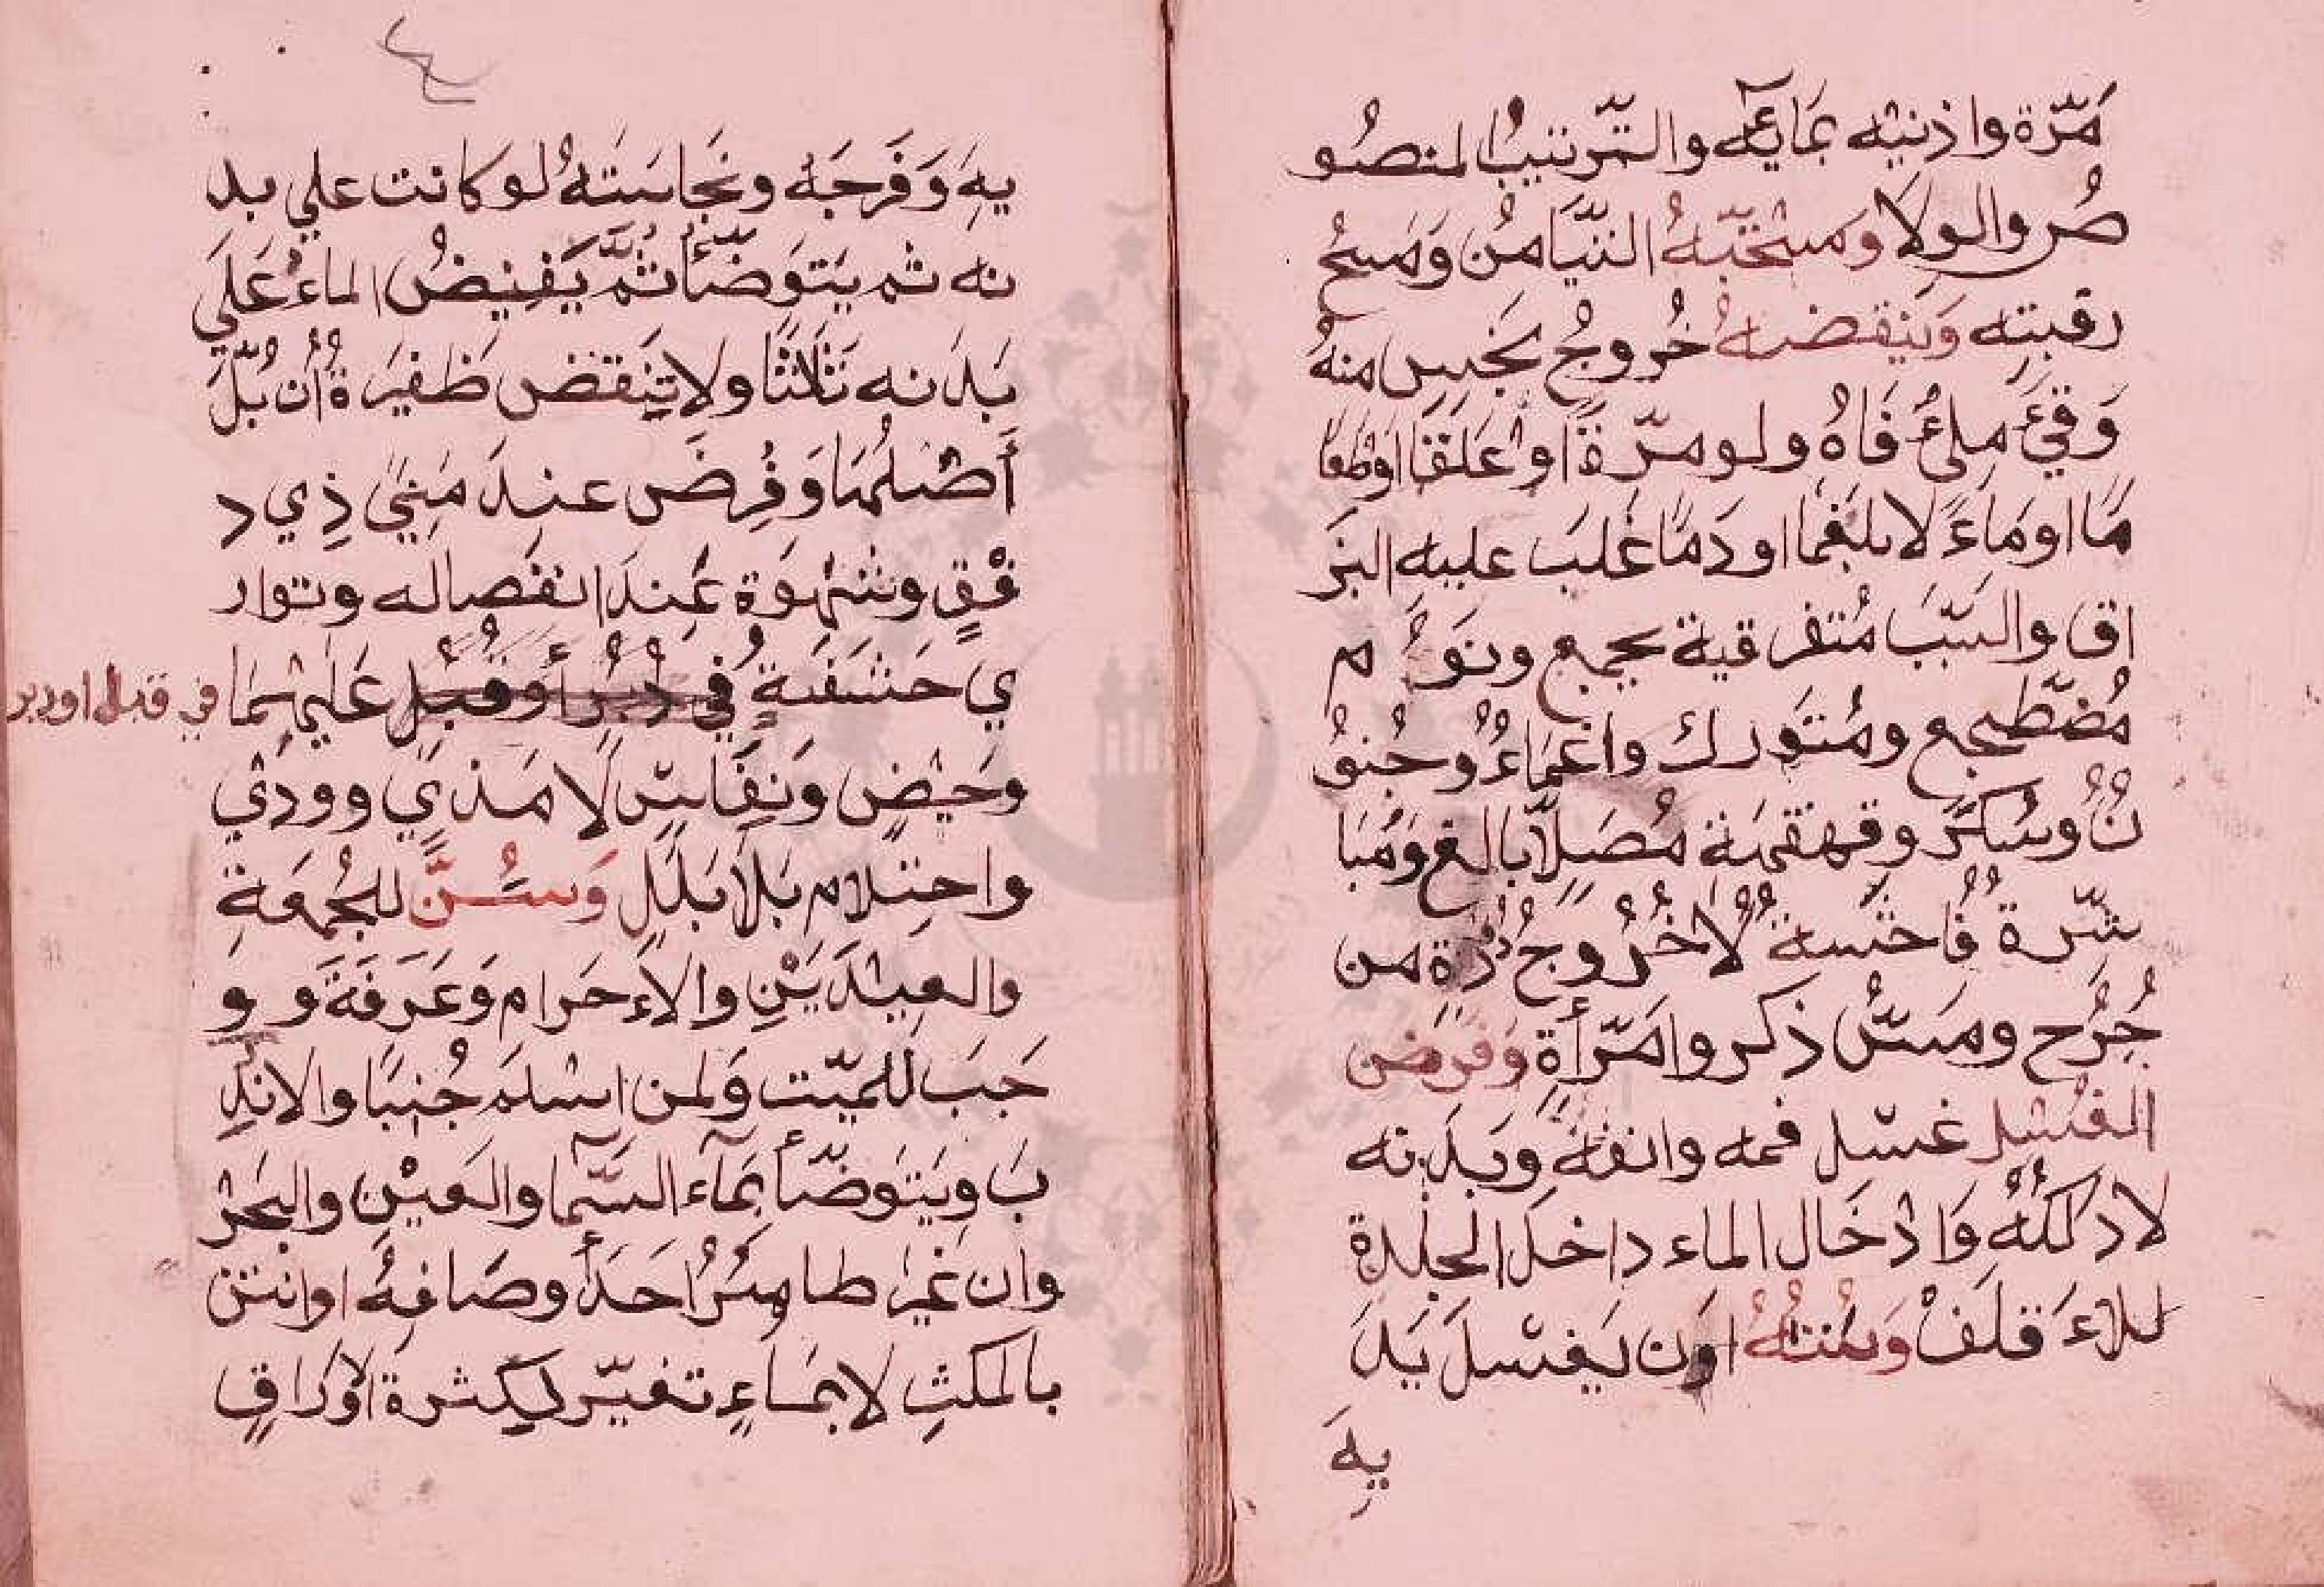 مَرّة واذنيه بمآيه والتّرتيبُ المنصُو
صُر والولا ومستحبّهُ التّيامُن وَمَسْحُ
رقبتِه وَينقضهُ خُروجُ نجَسٍ منهُ
وَقَيْءٍ مِلءُ فَاهُ ولو مرّةً اوْ عَلَقَا اوْ طعَا
مًا اوْمَاءً لا بلغَما اودَمًا غَلبَ عليه البزَ
اق والسّبَبَ مُتفرقية يجمع ونَوْمُ
مُضّطجع ومُتَوَرك واغمَاءُ وجُنُو
نُ وسُكرَ وقهقهَة مُصَلٍّ بالغ وَمُبَا
شّرة فُاحَشةُ لا خُرُوجُ دُرَة من
جُرُح ومَسُّ ذكر وامَرّأةٍ وَفَرَضَ
الغُسْلِ غسْل فمه وانفهُ وَبدَنه
لا دَلكَهُ وَادْخَال الماء داخلَ الجلْدة
للاءَقلَفْ وَسُنتهُ اون يَغسْلَ يَدَ
يهَ
يهَ وَفَرجَهُ ونجَاسَتهُ لو كانت علي بد
نه ثم يتوَضّأ ثُمّ يَفِيضُ الماءُ عَلَي
بَدَنه ثلاثًا ولا تنَقض ظفيَرةُ أن بُلّ
أصْلُهَا وَفُرِضَ عندَ مَنيٍ ذِي د
فْقٍ وشهْوَة عِندَ انفصاله وتوار
ي حَشفَةٍ في دُبُرٍ أو قُبُلٍ عَليْهمَا في قبل او دبر
وحَيْضٍ ونِفَاسٍ لا مَذي وودْي
واحتلام بَلا بَلَلٍ وَسُنَّ للجُمعَةِ
والعيْدَيْنِ والاءحَرام وَعَرَفَةَ و و
جَبَ للميّت وَلمن اسْلمَ جُنبًا والاندِ
بَ ويَتوَضّأ بمآء السّما والعَيْنِ والبَحْر
وان غيّرَ طاهِرُ احَدَ أوصَافِهُ اوانتن
بالمكثِ لا بمَاءٍ تغيّر لِكثرة الاوْرَاقِ